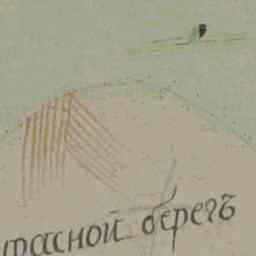 расной берегъ